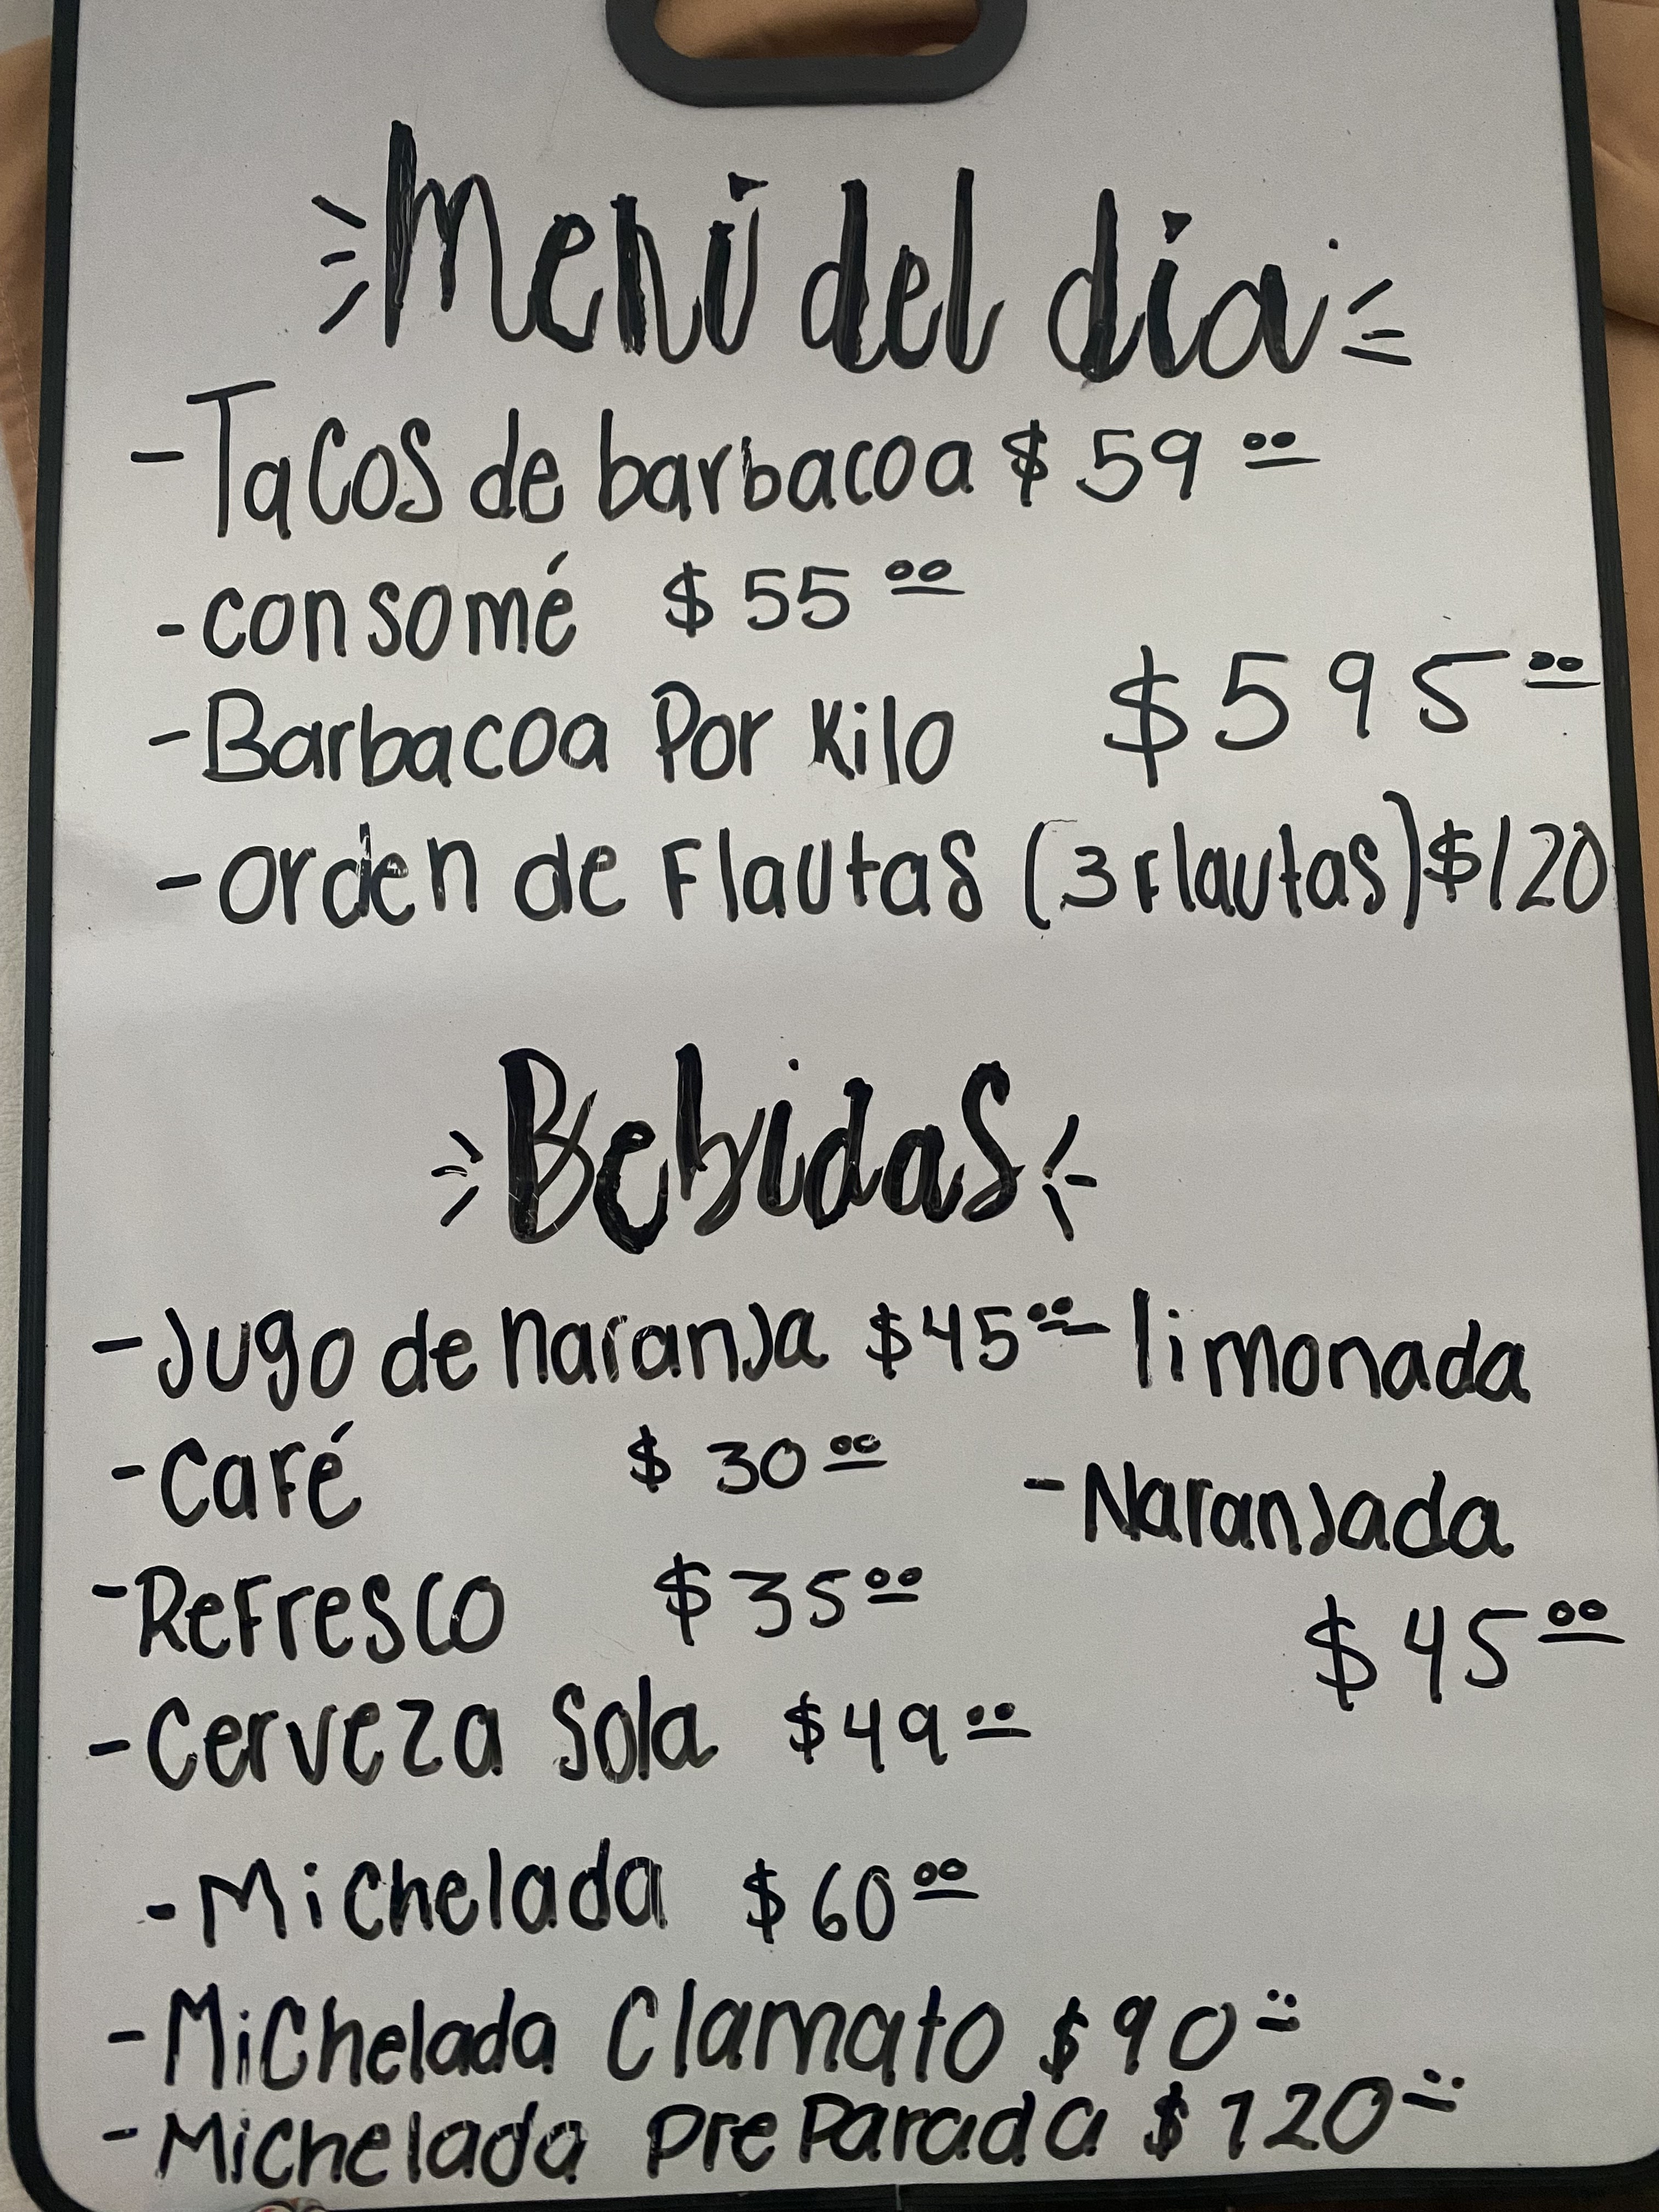 Menú del día
- Tacos de barbacoa $59.00
- consomé $55.00
- Barbacoa Por Kilo $595.00
- Orden de Flautas (3 Flautas) $120
Bebidas
- Jugo de naranja $45.00
- limonada
- Café $30.00
- Naranjada
- Refresco $35.00
$45.00
- Cerveza Sola $49.00
- Michelada $60.00
- Michelada Clamato $90.00
- Michelada PreParada $120.00